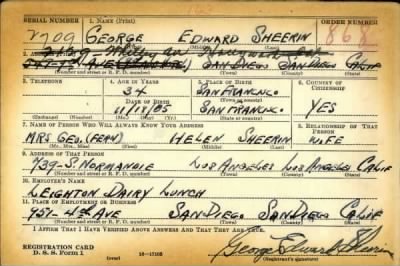 SERIAL NUMBER 1. NAME (Print) ORDER NUMBER
2709 GEORGE EDWARD SHEERIN 868
(First) (Middle) (Last)
SAN DIEGO SAN DIEGO CALIF
(Number and street or R. F. D. number) (Town) (County) (State)
3. TELEPHONE 4. AGE IN YEARS 5. PLACE OF BIRTH 6. COUNTRY OF CITIZENSHIP
34 SAN FRANCISCO
DATE OF BIRTH SAN FRANCISCO YES
(Exchange) (Number) (Mo.) (Day) (Yr.) (State or country)
7. NAME OF PERSON WHO WILL ALWAYS KNOW YOUR ADDRESS 8. RELATIONSHIP OF THAT PERSON
MRS GEO. HELEN SHEERIN WIFE
(Mr., Mrs., Miss) (First) (Middle) (Last)
9. ADDRESS OF THAT PERSON
739-S. NORMANDIE LOS ANGELES LOS ANGELES CALIF
(Number and street or R. F. D. number) (Town) (County) (State)
10. EMPLOYER'S NAME
LEIGHTON DAIRY LUNCH
11. PLACE OF EMPLOYMENT OR BUSINESS
4TH AVE SAN DIEGO SAN DIEGO CALIF
(Number and street or R. F. D. number) (Town) (County) (State)
I AFFIRM THAT I HAVE VERIFIED ABOVE ANSWERS AND THAT THEY ARE TRUE.
REGISTRATION CARD George Edward Sheerin
D. S. S. Form 1 (over) (Registrant's signature)